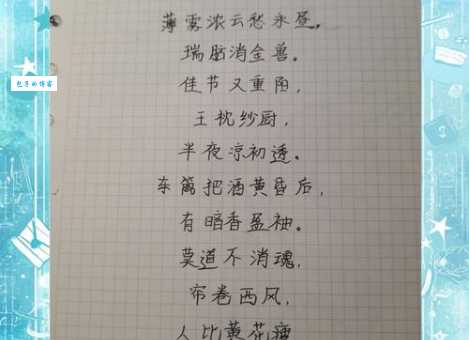 薄雾浓云愁永昼。
瑞脑消金兽。
佳节又重阳，
王枕纱厨，
半夜凉初透。
东篱把酒黄昏后，
有暗香盈袖。
莫道不消魂，
帘卷西风，
人比黄花瘦